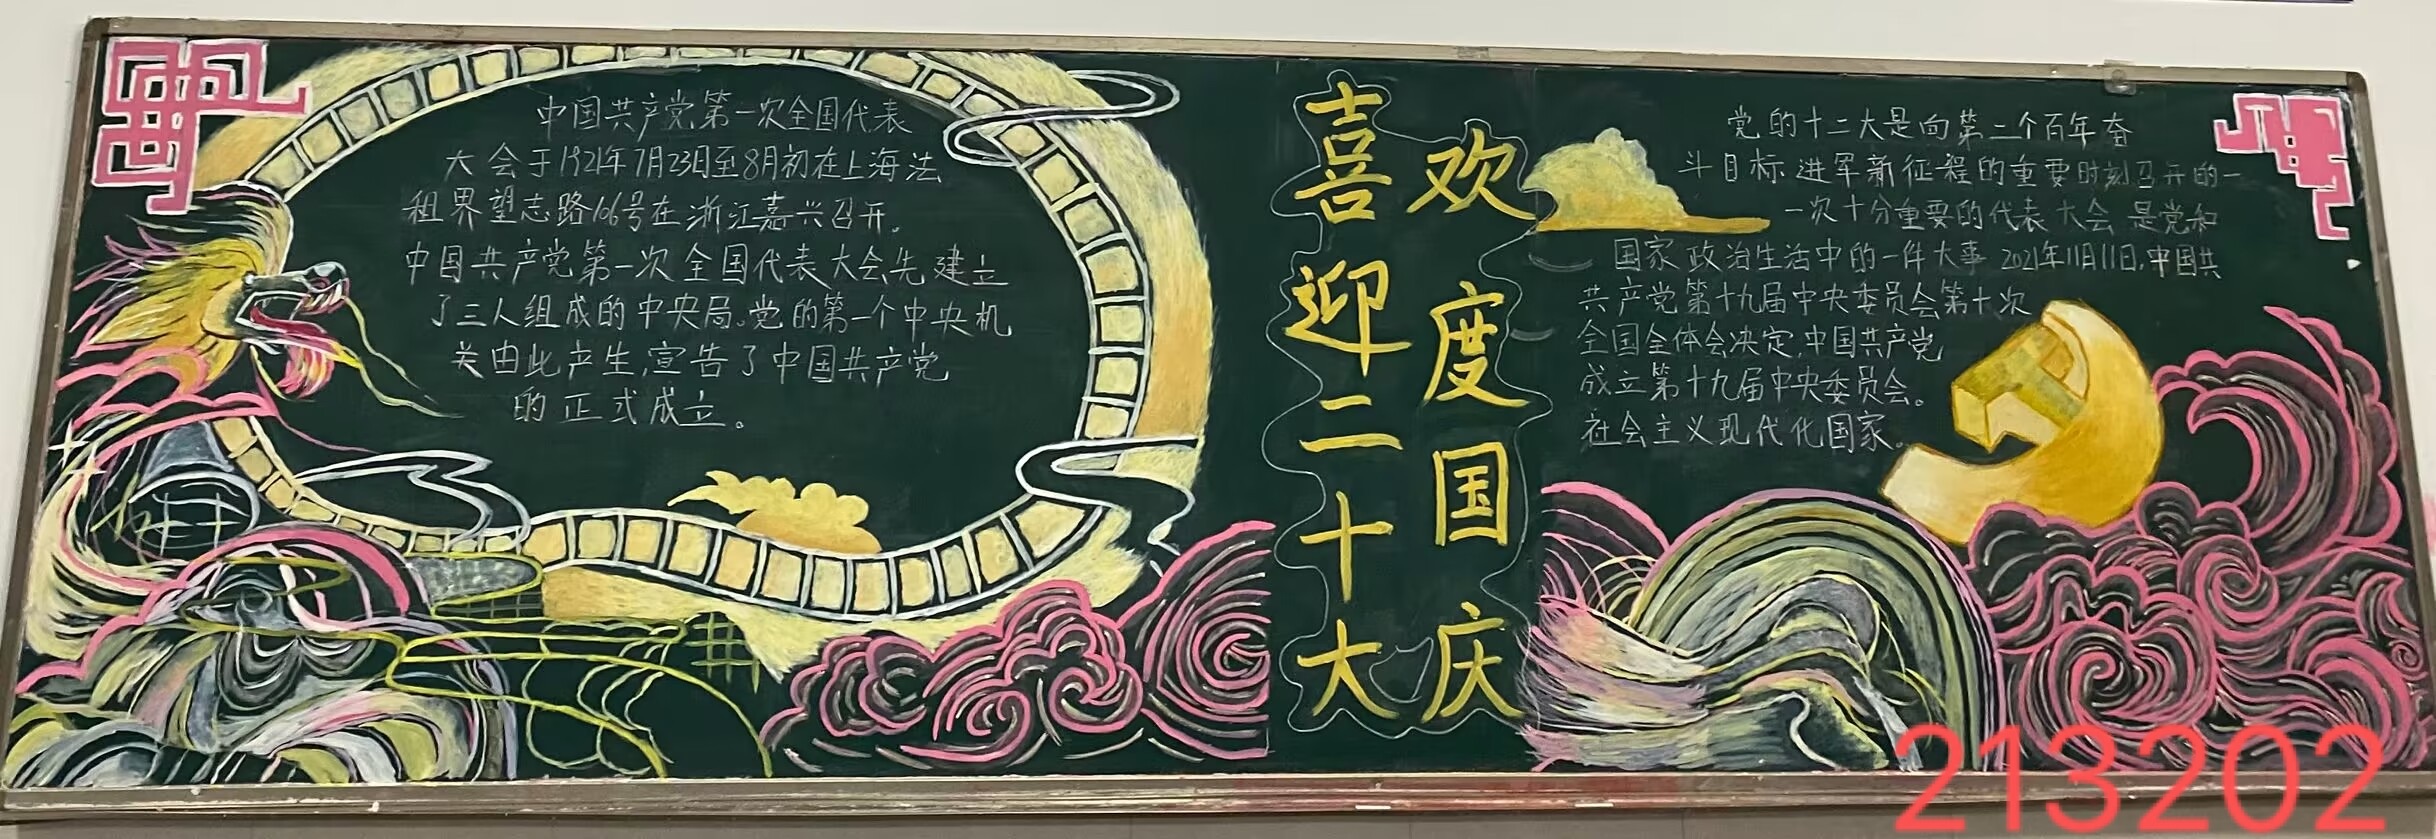 中国共产党第一次全国代表
大会于1921年7月23日至8月初在上海法
租界望志路106号在浙江嘉兴召开。
中国共产党第一次全国代表大会先建立
了三人组成的中央局。党的第一个中央机
关由此产生,宣告了中国共产党
的正式成立。
喜迎二十大
欢度国庆
党的十二大是向第二个百年奋
斗目标进军新征程的重要时刻召开的一
一次十分重要的代表大会 是党和
国家政治生活中的一件大事 2021年11月11日,中国共
共产党第十九届中央委员会第十次
全国全体会决定,中国共产党
成立第十九届中央委员会。
社会主义现代化国家。
213202